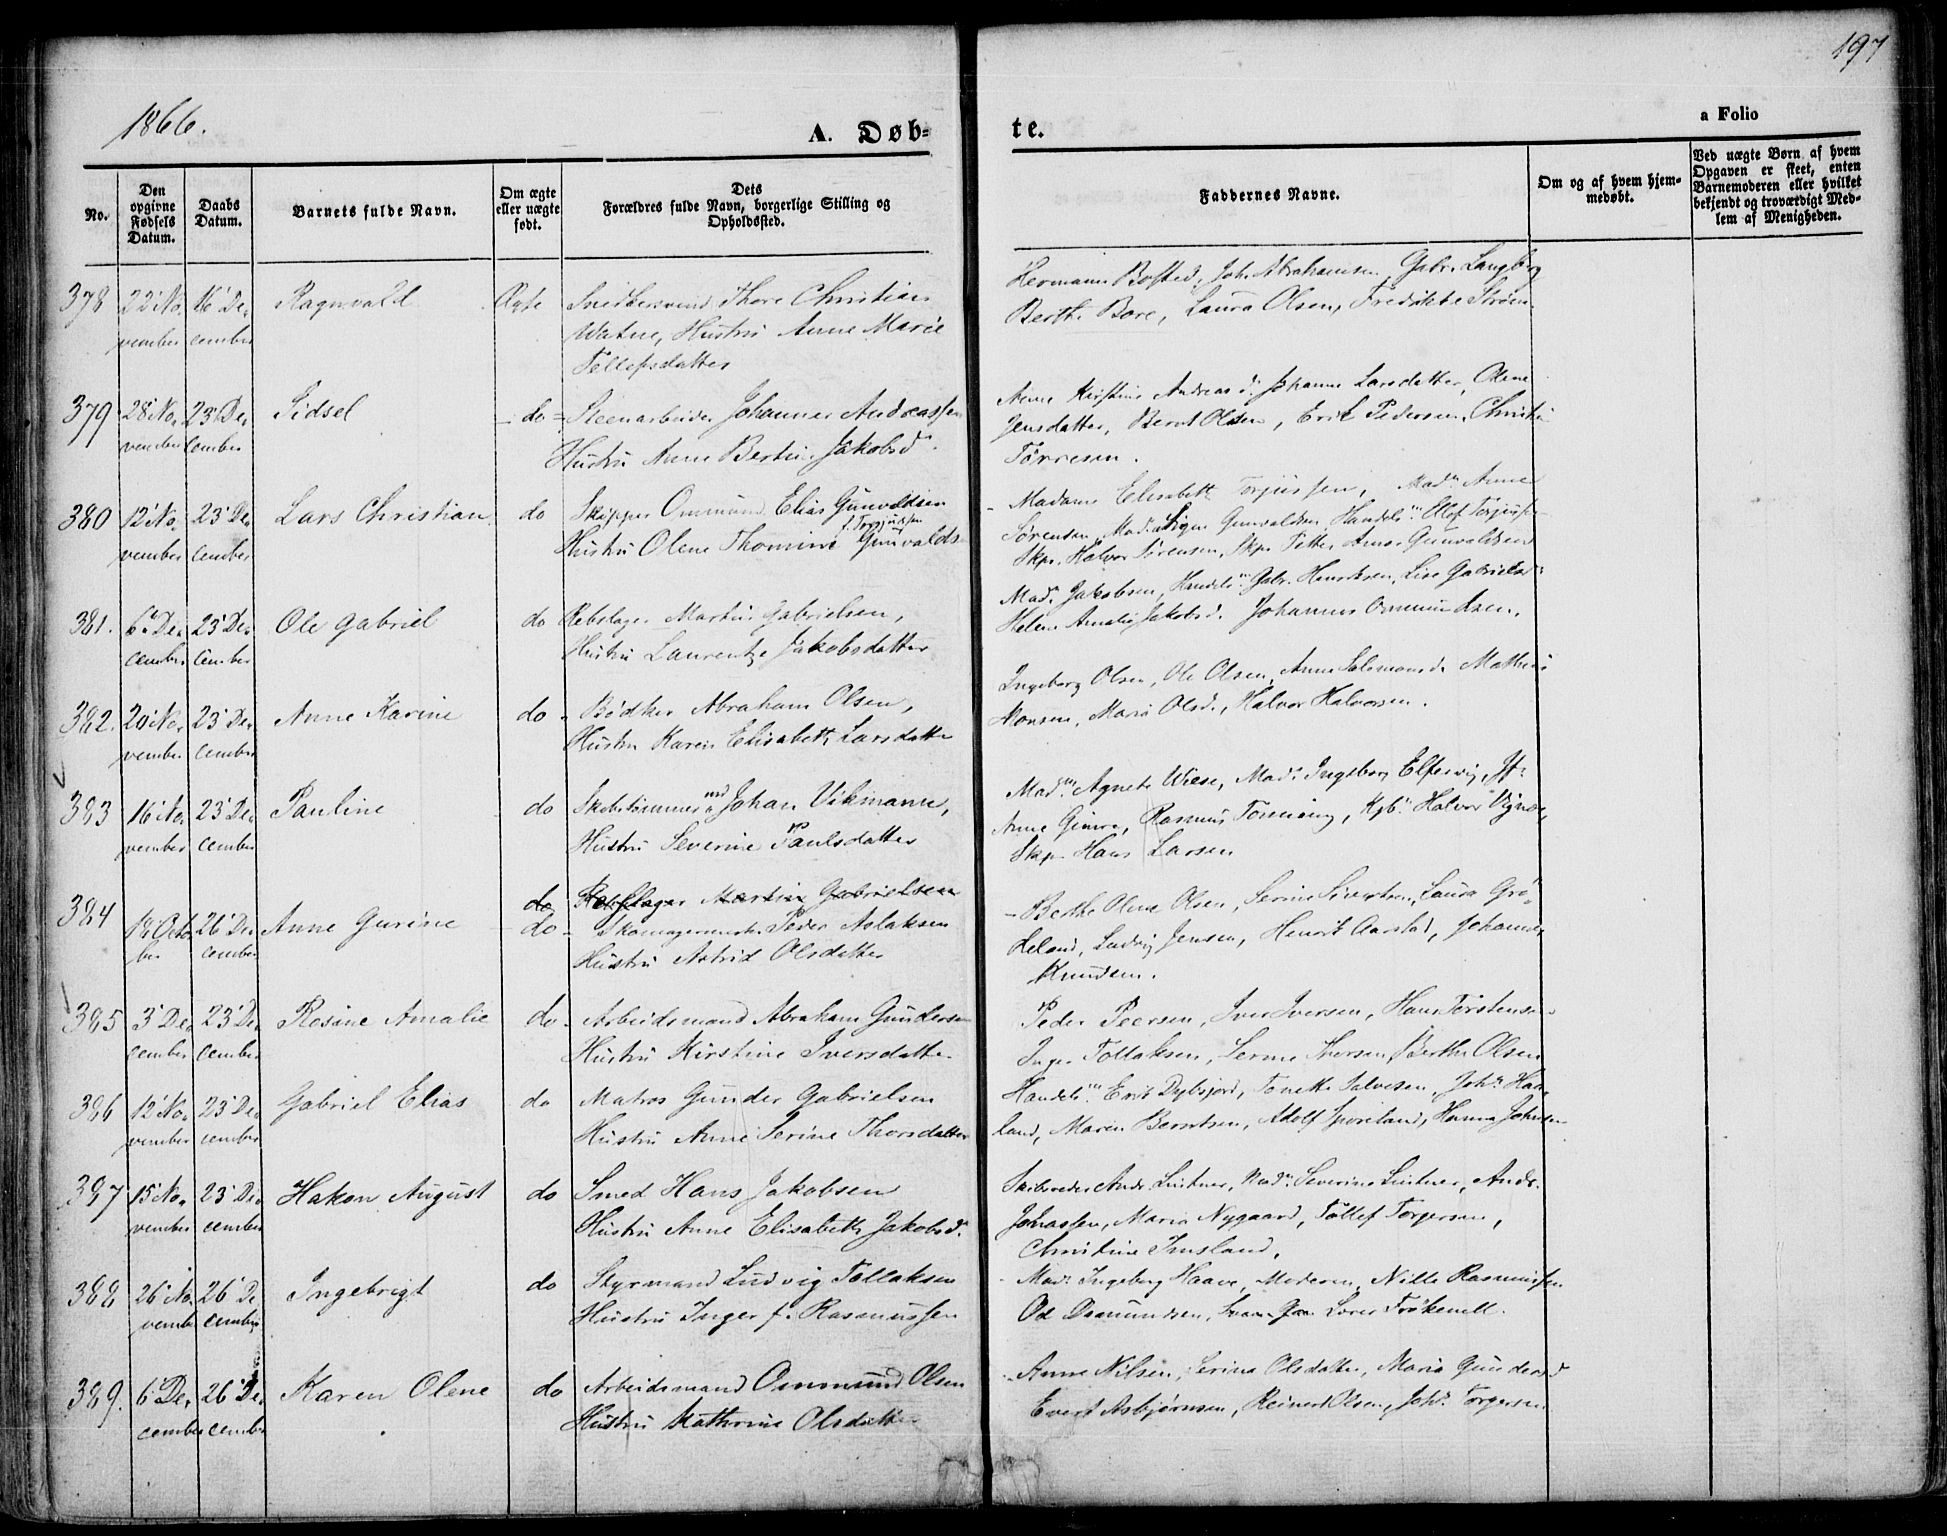 197
1866.
A. Døb-
te.
a Folio
No.
Den opgivne Fødsels Datum.
Daabs Datum.
Barnets fulde Navn.
Om ægte eller uægte født.
Dets
Forældres fulde Navn, borgerlige Stilling og
Opholdssted.
Faddernes Navne.
Om og af hvem hjem-
medøbt.
Ved uægte Børn af hvem
Opgaven er skeet, enten
Barnemoderen eller hvilket
bekjendt og troværdigt Med-
lem af Menigheden.
378 22' No- 16' De- Ragnvald Ægte Snedkersvend Thore Christian
vember cember Watne, Hustru Anne Marie
Tollefsdatter
Hermann Bosted, Joh. Abrahamsen, Gabr. Langberg
Berthe Bore, Laura Olsen, Fredrikke Strøm
379 28' No- 23' De- Sidsel do Steenarbeider Johannes Andreassen
vember cember Hustru Anne Bertine Jakobsd.
Anne Kirstine Andreasd., Johanne Larsdatter, Olene
Jensdatter, Bernt Olsen, Erik Pedersen, Christi
Tørresen.
380 12' No- 23' De- Lars Christian do Skipper Ommund Elias Gunvaldsen
f. Torjussen
vember cember Hustru Olene Thomine Gunvalds-
Madame Elisabeth Torjussen, Mad. Anne
Sørensen, Mad. Signe Gunvaldsen, Handelsm. Ellef Torjuss-
Skpr. Halvor Sørensen, Skpr. Petter Gunvaldsen
381. 6' De- 23' De- Ole Gabriel do Rebslager Martin Gabrielsen,
cember cember Hustru Laurentze Jakobsdatter
Mad. Jakobsen, Handelsm. Gabr. Henriksen, Lise Gabrielsd.
Helene Amalie Jakobsd. Johannes Ommundsen.
382. 20' No- 23' De- Anne Karine do Bødker Abraham Olsen,
vember cember Hustru Karen Elisabeth Larsdatter
Ingeborg Olsen, Ole Olsen, Anne Salomonsd. Mathias
Monsen, Maria Olsd., Halvor Halvorsen.
383 16' No- 23' De- Pauline do Skibstømmermd. Johan Vikmann,
vember cember Hustru Severine Paulsdatter
Mad. Agnete Wiese, Mad. Ingeborg Elfersvig, Jf.
Anne Gimre, Rasmus Tønning, Kjb. Halvor Vignæs,
Skpr. Hans Larsen
384 18' Octo- 26' De- Anne Gurine do Rebslager Martin Gabrielsen
do Skomagermester Peder Aslaksen
ber cember Hustru Astrid Olsdatter
Berthe Olene Olsen, Serine Sivertsen, Laura Grø-
deland, Ludvig Jensen, Henrik Aarstad, Johannes
Knudsen.
385 3' De- 23' De- Rosine Amalie do Arbeidsmand Abraham Gundersen
cember cember Hustru Kirstine Iversdatter
Peder Peersen, Iver Iversen, Hans Torstensen
Inger Tollaksen, Serine Iversen, Berthe Olsen
386 12' No- 23' De- Gabriel Elias do Matros Gunder Gabrielsen
vember cember Hustru Anne Serine Thorsdatter
Handelsm. Erik Dybsjord, Tonette Salvesen, Johs. Haa-
land, Maren Berntsen, Adolf Sporeland, Hanna Johnsen
387 15' No- 23' De- Hakon August do Smed Hans Jakobsen
vember cember Hustru Anne Elisabeth Jakobsd.
Skibsreder Andr. Lintner, Mad. Severine Lintner, Andr.
Johassen, Maria Nygaard, Tollef Torgersen,
Christine Imsland.
388 26' No- 26' De- Ingebrigt do Styrmand Ludvig Tollaksen
vember cember Hustru Inger f. Rasmussen
Mad. Ingeborg Haave, Moderen, Nille Rasmussen
Od Osmundsen, Lorer
389. 6' De- 26' De- Karen Olene do Arbeidsmand Ommund Olsen
cember cember Hustru Kathrine Olsdatter
Anne Nilsen, Serina Olsdatter, Maria Gundersd
Evert Asbjørnsen, Reinert Olsen, Johs. Torgersen